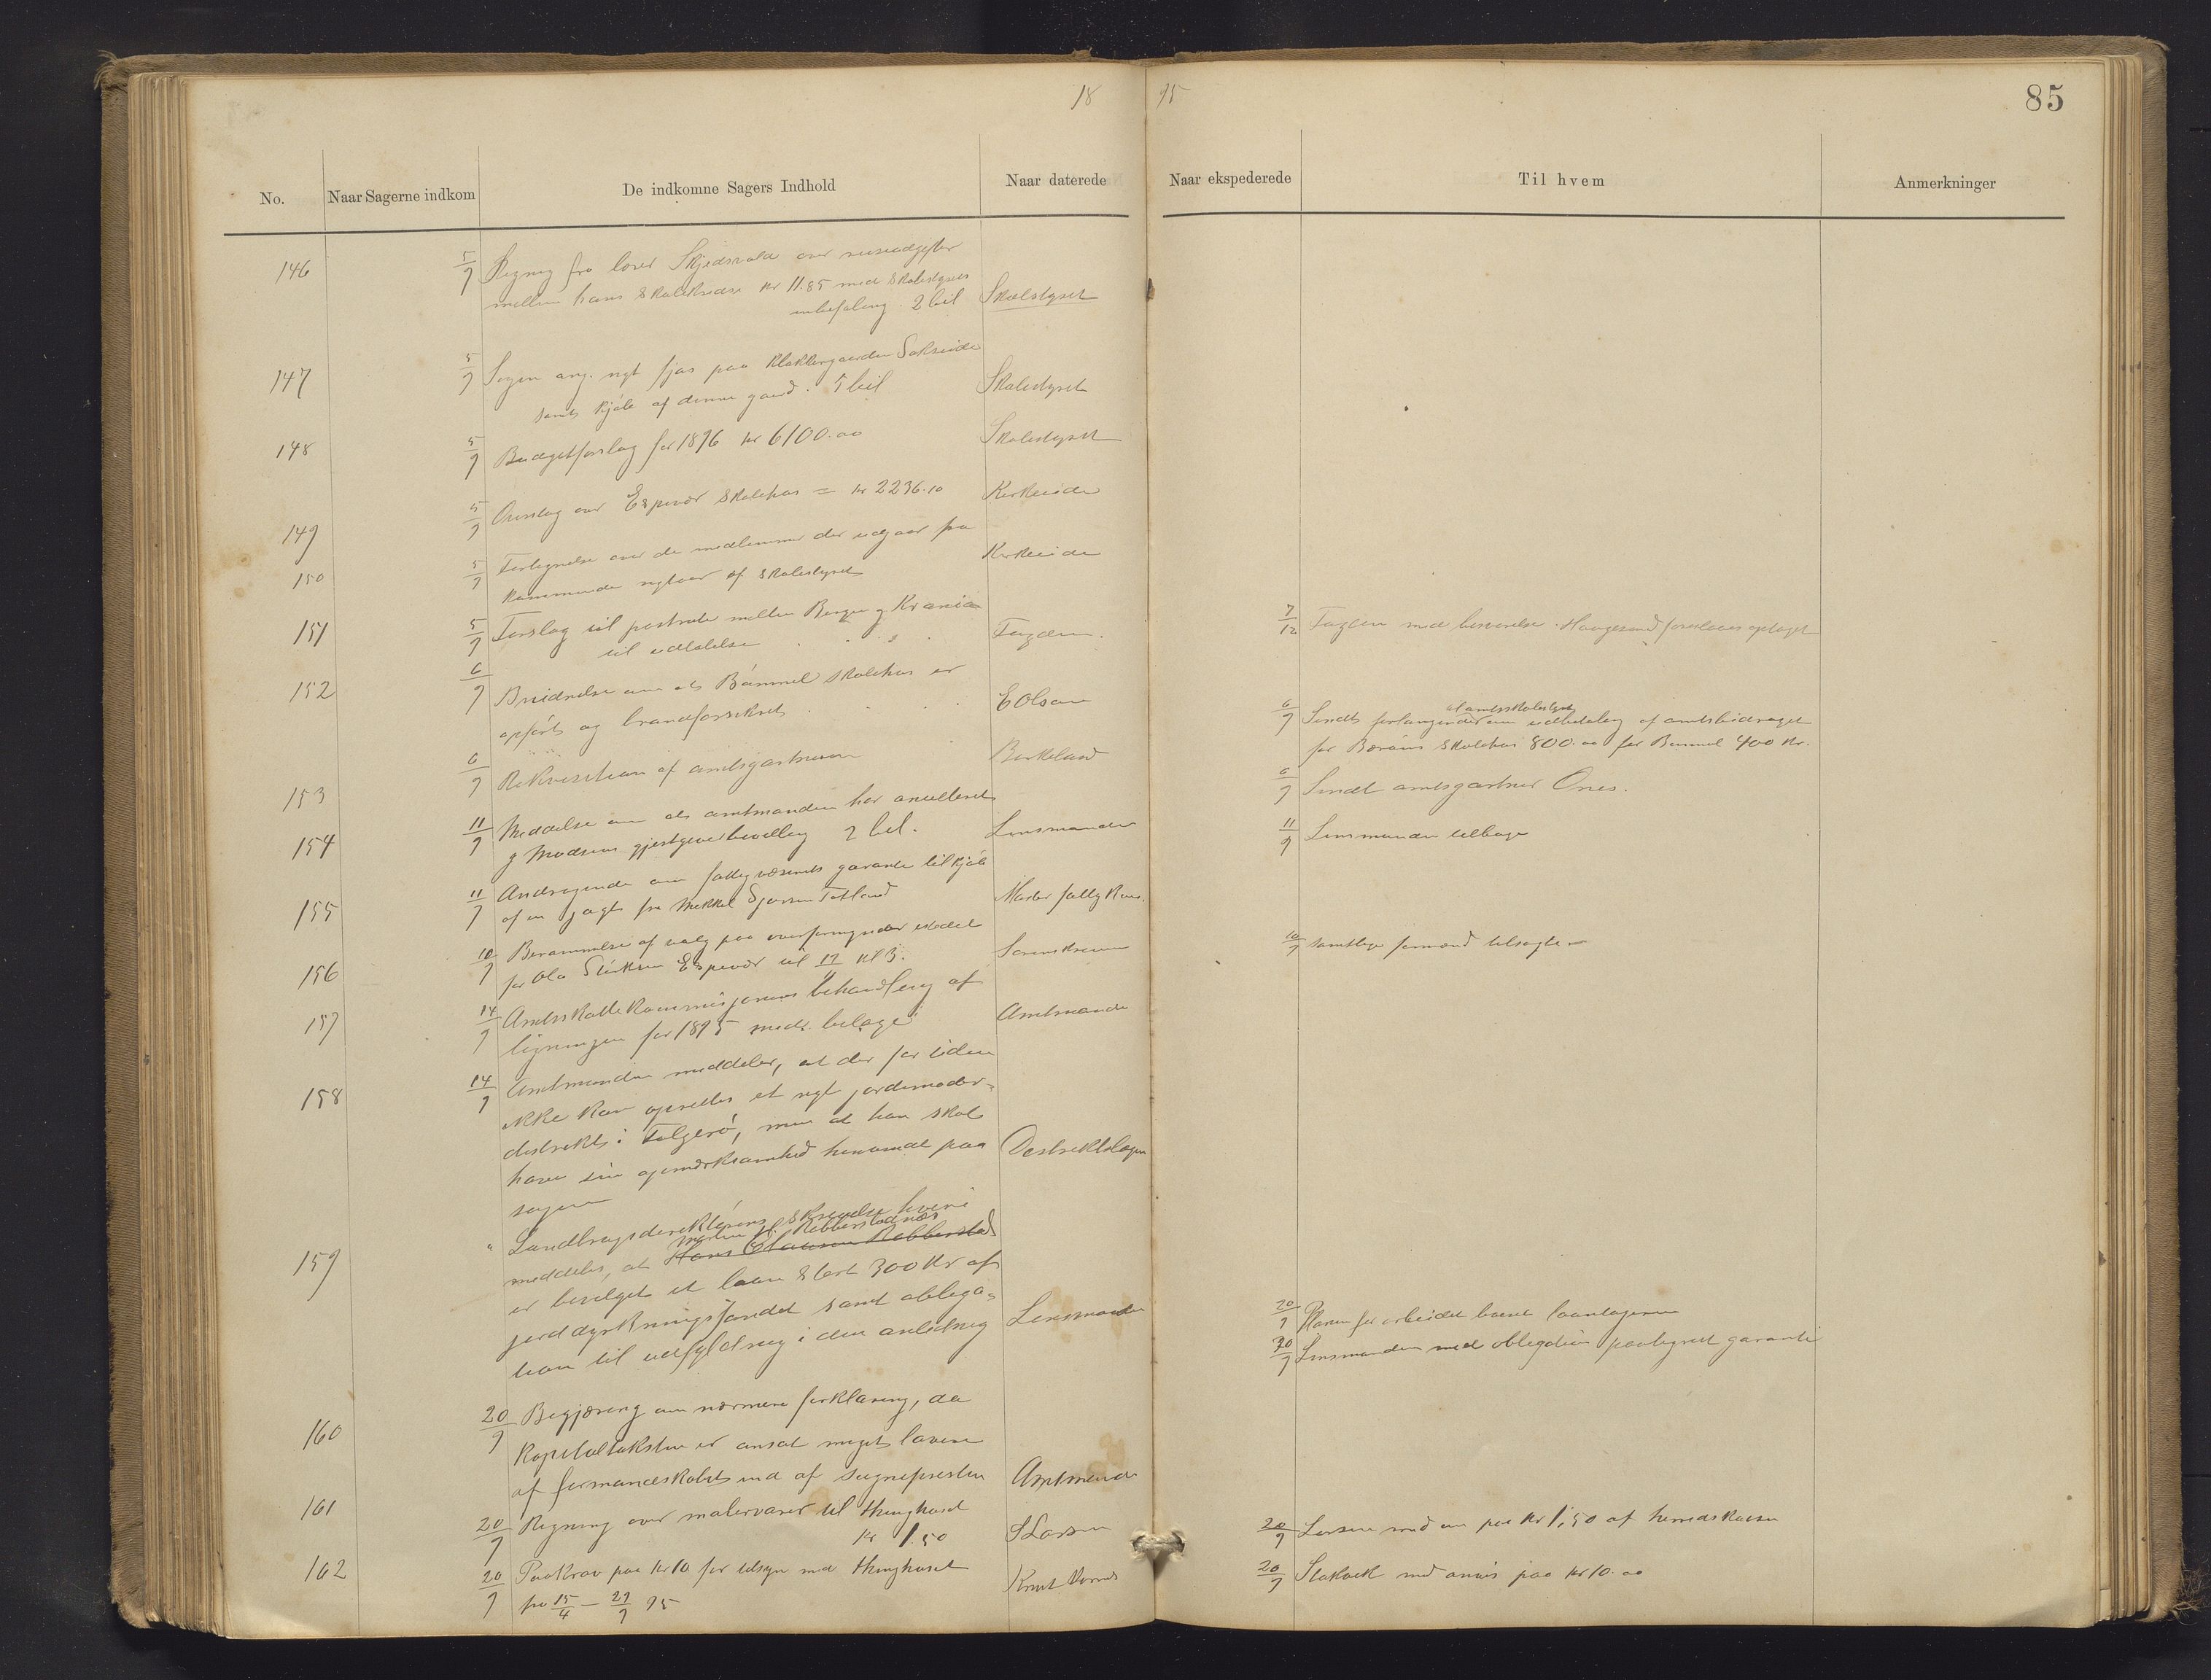 18 95
85
No.
Naar Sagerne indkom
De indkomne Sagers Indhold
Naar daterede
Naar ekspederede
Til hvem
Anmerkninger
146 5/9 Regning fra lærer Skjedsvold over reiseudgifter
mellem hans skolekredse kr 11.85 med skolestyrets
anbefaling 2 bil Skolestyret
147 5/9 Sagen ang. nyt fjøs paa klokkergaarden
samt kjøb af denne gaard. 5 bil Skolestyret
148 5/9 Budgetforslag for 1896 kr 6100.00 Skolestyret
149 5/9 Overslag over Espevær skolehus = kr 2236.10
150 5/9 Fortegnelse over de medlemmer der udgaar fra
kommende nytaar af skolestyret
151 5/9 Forslag til postrute mellem Bergen og Krania
til udtalelse Fogden.
7/12 Fogden med besvarelse. Haugesund foreslaaes optaget
152 6/9 om at Bømmel skolehus er
opført og brandforsikret E Olsen
6/9 Sendt forlangende til amtsskolestyret om udbetaling af amtsbidraget
for skolehus 800.00 for Bømmel 400 kr.
153 6/9 Rekvisition af amtsgartneren Birkeland
6/9 Sendt amtsgartner Ones.
154 11/9 Meddelse om at amtmanden har anulleret
g Madsens gjestgiverbevilling 2 bil. Lensmanden
11/9 Lensmanden tilbage
155 11/9 Andragende om fattigvæsenets garanti til kjøb
af en jagt fra Mikkel
156 10/9 Berammelse af valg paa overformynder istedet
for Ola Espevær til 17/9 kl 3. Sorenskriveren
10/9 samtlige formænd tilsagte
157 14/9 Amtsskattekommisjonens behandling af
ligningen for 1895 med bilage Amtmanden
158 14/9 Amtmanden meddeler, at der for tiden
ikke kan oprettes et nyt jordemoder-
distrikt i Følgerø, men at han skal
have sin opmærksomhed henvendt paa
sagen Distriktslægen
159 " Landbrugsdirektørens skrivelse hvori
meddeles, at Hans Robberstad
Martin H. Robberstadnes
er bevilget et laan stort 300 kr af
jorddyrkningsfondet samt obliga-
tion til udfyldning i den anledning Lensmanden
20/9 Planen for arbeidet baaret laantageren
20/9 Lensmanden med obligation paategnet garanti
160 20/9 Begjæring om nærmere forklaring, da
kapitaltaksten er ansat meget lavere
af formandskabet end af sognepresten Amtmanden
161 20/9 Regning over malervarer til thinghuset
kr 1.50 S Larsen
20/9 Larsen med an paa kr 1,50 af herredskassen
162 20/9 Paakrav paa kr 10 for tilsyn med thinghuset
fra 15/4 – 29/9 95 Knut
20/9 med anvis paa kr 10.00